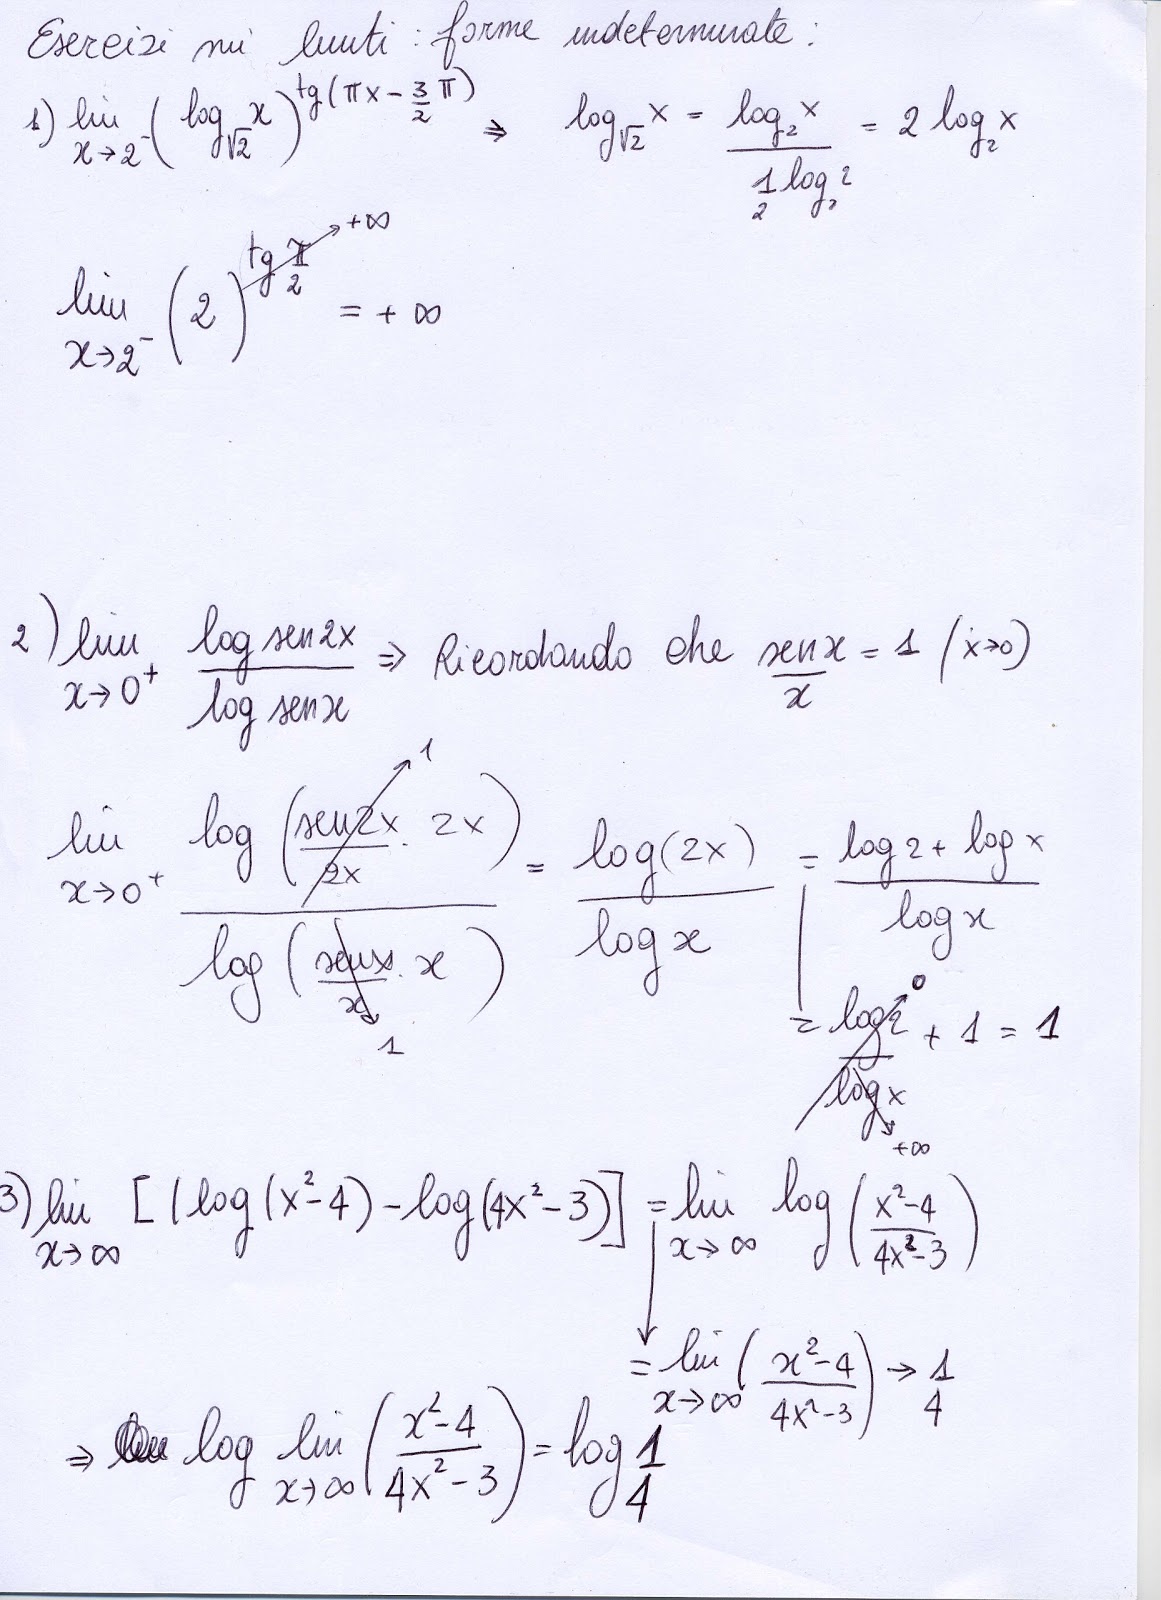 Esercizi sui limiti : forme indeterminate :
1) lim x→2⁻ (log_√2 x)^tg(πx - 3/2 π) ⇒ log_√2 x = log₂x / (1/2 log₂2) = 2 log₂x
lim x→2⁻ (2)^tg π/2 → +∞ = + ∞
2) lim x→0⁺ log sen2x / log senx ⇒ Ricordando che senx/x = 1 (x→0)
lim x→0⁺ log(sen2x/2x · 2x) / log(senx/x · x) = log(2x) / log x = (log 2 + log x) / log x
1
1
= log2 / log x + 1 = 1
0
+∞
3) lim x→∞ [(log(x²-4) - log(4x²-3)] = lim x→∞ log((x²-4)/(4x²-3))
= lim x→∞ ((x²-4)/(4x²-3)) → 1/4
⇒ log lim x→∞ ((x²-4)/(4x²-3)) = log 1/4